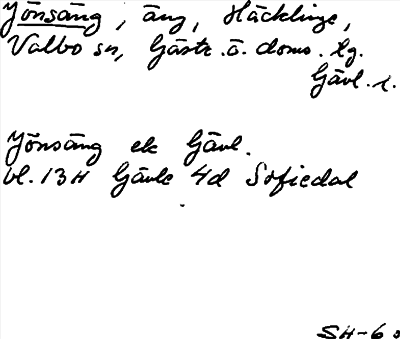 Jönsäng, äng, Häcklinge,
Valbo sn, Gästr. ö. doms. lg.
Gävl. l.
Jönsäng ek Gävl.
bl. 13H Gävle 4d Sofiedal
SH-6